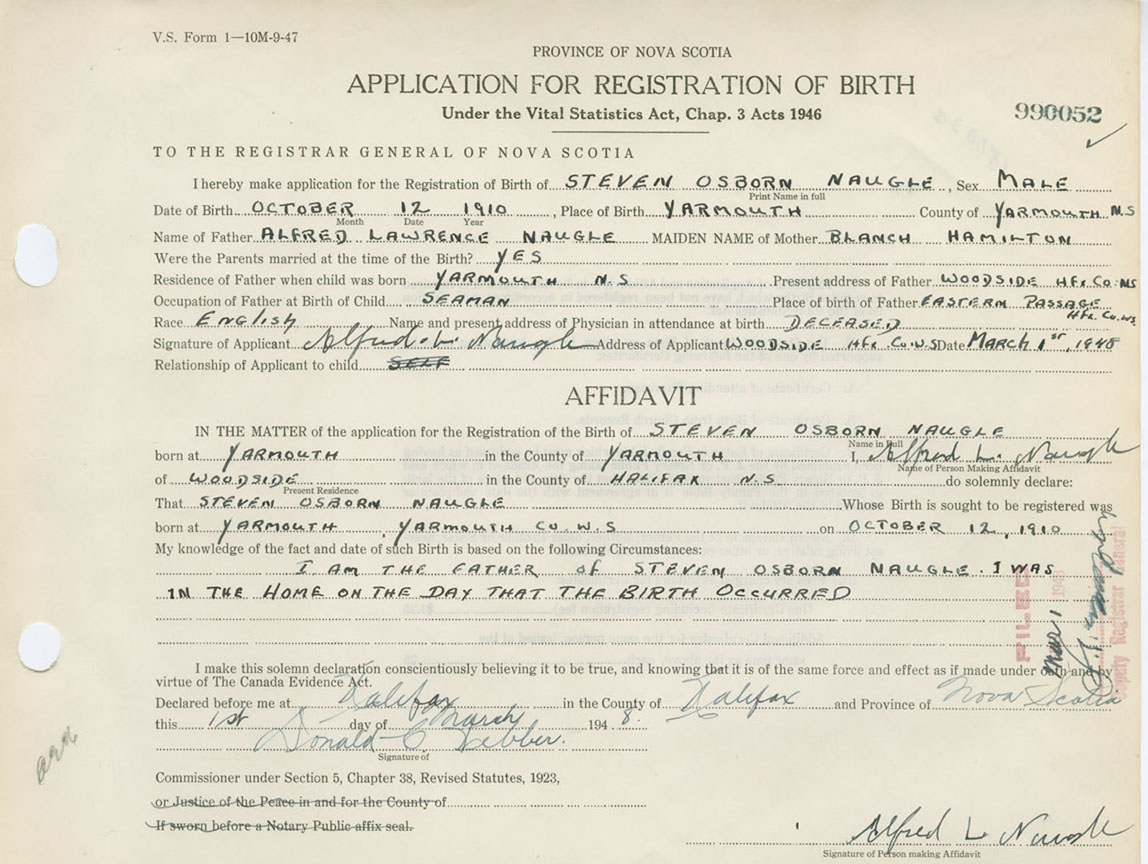 V.S. Form 1—10M-9-47
PROVINCE OF NOVA SCOTIA
APPLICATION FOR REGISTRATION OF BIRTH
Under the Vital Statistics Act, Chap. 3 Acts 1946
990052
TO THE REGISTRAR GENERAL OF NOVA SCOTIA
I hereby make application for the Registration of Birth of STEVEN OSBORN NAUGLE, Sex MALE
Print Name in full
Date of Birth OCTOBER 12 1910, Place of Birth YARMOUTH County of YARMOUTH N.S
Month Date Year
Name of Father ALFRED LAWRENCE NAUGLE MAIDEN NAME of Mother BLANCH HAMILTON
Were the Parents married at the time of the Birth? YES
Residence of Father when child was born YARMOUTH N.S Present address of Father WOODSIDE HFX. CO. NS
Occupation of Father at Birth of Child SEAMAN Place of birth of Father EASTERN PASSAGE
HFX. CO. NS
Race ENGLISH Name and present address of Physician in attendance at birth DECEASED
Signature of Applicant Alfred L. Naugle Address of Applicant WOODSIDE HFX. CO. N.S Date MARCH 1ST, 1948
Relationship of Applicant to child SELF
AFFIDAVIT
IN THE MATTER of the application for the Registration of the Birth of STEVEN OSBORN NAUGLE
Name in Full
born at YARMOUTH in the County of YARMOUTH I, Alfred L. Naugle
Name of Person Making Affidavit
of WOODSIDE in the County of HALIFAX N.S do solemnly declare:
Present Residence
That STEVEN OSBORN NAUGLE Whose Birth is sought to be registered was
born at YARMOUTH, YARMOUTH CO. N.S on OCTOBER 12, 1910
My knowledge of the fact and date of such Birth is based on the following Circumstances:
I AM THE FATHER OF STEVEN OSBORN NAUGLE. I WAS
IN THE HOME ON THE DAY THAT THE BIRTH OCCURRED
FILED
Mar 1
Deputy Registrar General
I make this solemn declaration conscientiously believing it to be true, and knowing that it is of the same force and effect as if made under oath and by
virtue of The Canada Evidence Act.
Declared before me at Halifax in the County of Halifax and Province of Nova Scotia
this 1st day of March 1948.
Donald C Webber.
Signature of
Commissioner under Section 5, Chapter 38, Revised Statutes, 1923,
or Justice of the Peace in and for the County of
If sworn before a Notary Public affix seal.
Alfred L Naugle
Signature of Person making Affidavit